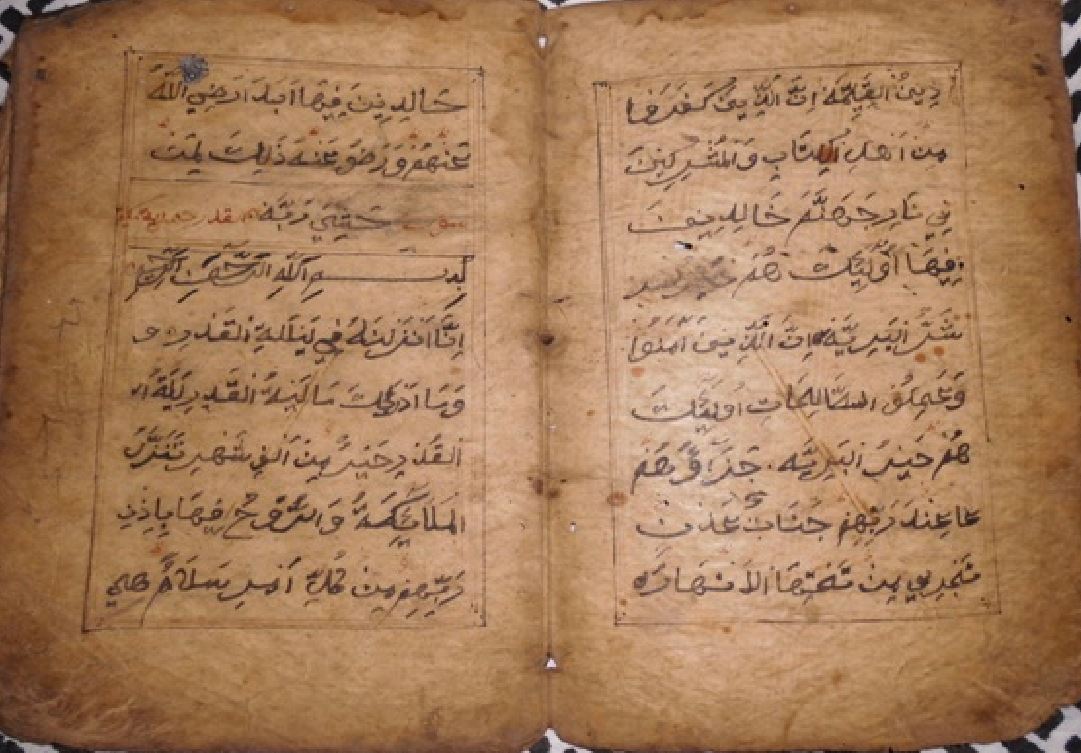 دِينُ القَيِّمَة اِنَّ الَّذِينَ كَفَرَوا
مِنْ اَهْلِ الكِتَابِ وَالمُشْرِكِينَ
فِي نَارِ جَهَنَّمَ خَالِدِينَ
فِيهَا اُوْلَئِكَ هُمْ
شَرُّ البَرِيَّه اِنَّ الَّذِينَ اَمَنُوا
وَعَمِلُو الصَّالِحَاتِ اوُلَئِكَ
هُمْ خَيْرُ البَرِيَّه جَزَاؤُهُمْ
عِنْدَ رَبِّهِمْ جَنَّاتُ عَدْنٍ
تَجْرِي مِنْ تَحْتِهَا الاَنْهَارَ
خَالِدِينَ فِيهَا اَبَدَا رَضِيَ اللَّهُ
عَنْهُمْ وَرَضُو عَنْهَ ذَلِكَ لِمَنْ
خَشِيَ رَبَّه
بِسْمِ اللَّهِ الرَّحْمَنِ الرَّحِيم
اِنَّا اَنْزَلْنَهُ فِي لَيْلَةِ القَدْرِ و
وَمَا اَدْرَكَ مَا لَيْلَةُ القَدْرِ لَيْلَةُ
القَدْرِ خَيْرٌ مِنْ اَلْفِ شَهْرٍ تَنَزَّلُ
المَلَائِكَةُ وَالرُّوحُ فِيهَا بِاِذْنِ
رَبِّهِمْ مِنْ كُلِّ اَمْرٍ سَلَامٌ هِيَ